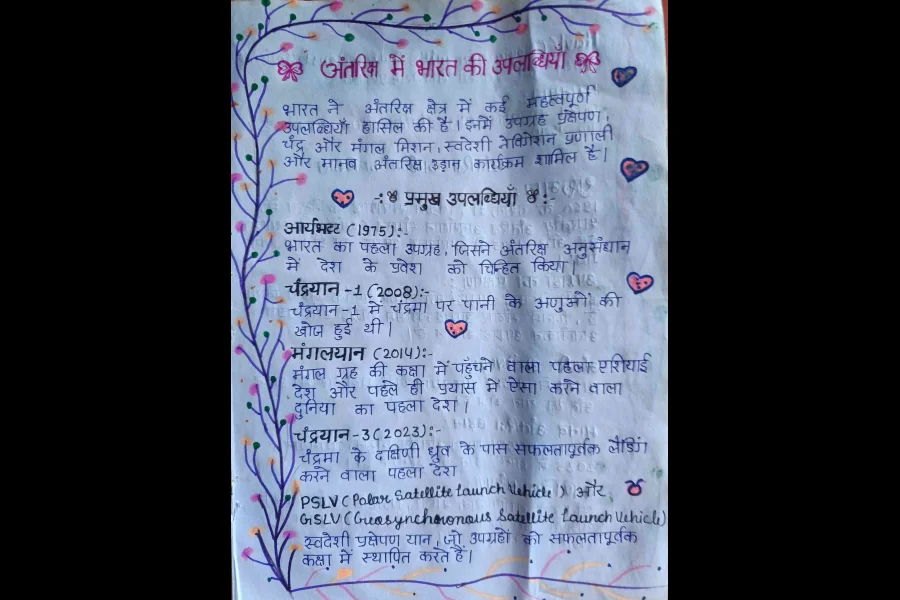 अंतरिक्ष में भारत की उपलब्धियाँ
भारत ने अंतरिक्ष क्षेत्र में कई महत्वपूर्ण
उपलब्धियाँ हासिल की है। इनमें उपग्रह प्रक्षेपण,
चंद्र और मंगल मिशन, स्वदेशी नेविगेशन प्रणाली
और मानव अंतरिक्ष उड़ान कार्यक्रम शामिल है।
-: प्रमुख उपलब्धियाँ :-
आर्यभट्ट (1975):-
भारत का पहला उपग्रह, जिसने अंतरिक्ष अनुसंधान
में देश के प्रवेश को चिन्हित किया।
चंद्रयान -1 (2008):-
चंद्रयान -1 में चंद्रमा पर पानी के अणुओं की
खोज हुई थी।
मंगलयान (2014):-
मंगल ग्रह की कक्षा में पहुँचने वाला पहला एशियाई
देश और पहले ही प्रयास में ऐसा करने वाला
दुनिया का पहला देश।
चंद्रयान-3(2023):-
चंद्रमा के दक्षिणी ध्रुव के पास सफलतापूर्वक लैंडिंग
करने वाला पहला देश
PSLV (Polar Satellite Launch Vehicle) और
GSLV (Geosynchronous Satellite Launch Vehicle)
स्वदेशी प्रक्षेपण यान, जो उपग्रहों को सफलतापूर्वक
कक्षा में स्थापित करते हैं।